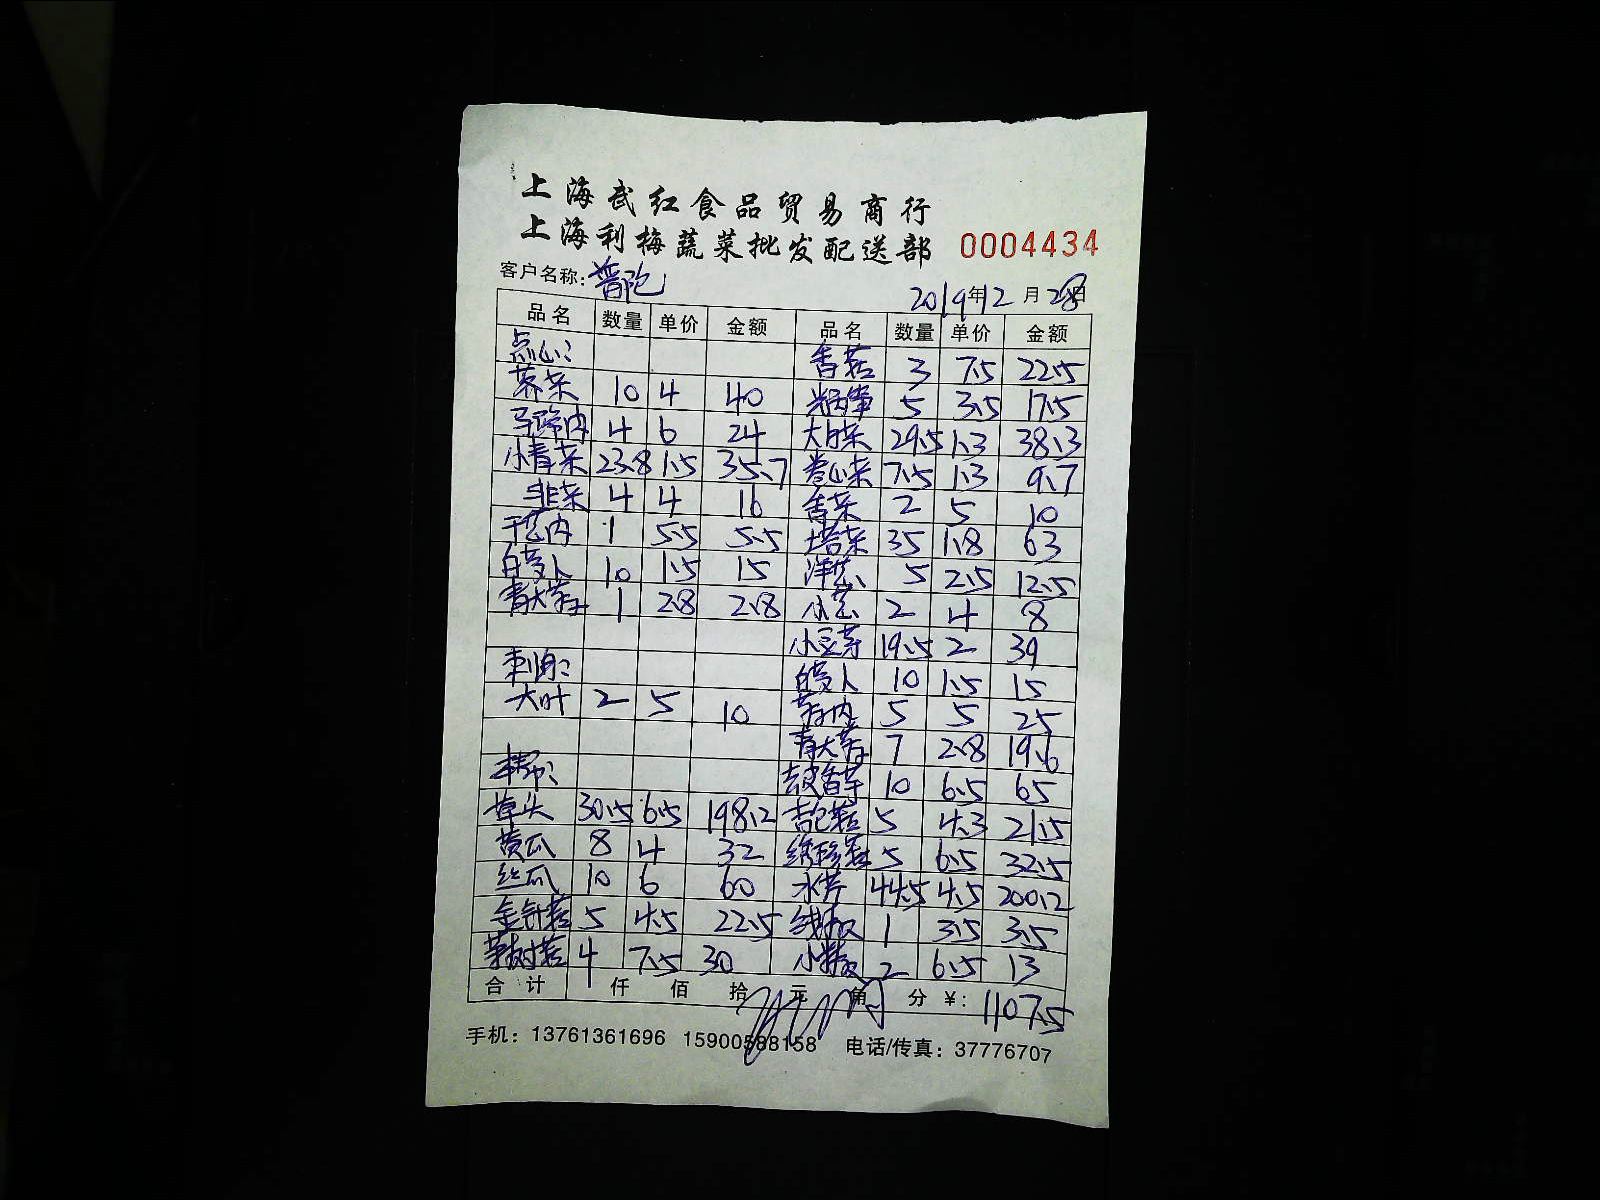 上海武红食品贸易商行
上海利梅蔬菜批发配送部 0004434
客户名称：普陀
2019年12月28日
品名 数量 单价 金额 品名 数量 单价 金额
点心： 香菇 3 7.5 22.5
荠菜 10 4 40 5 3.5 17.5
马蹄肉 4 6 24 大白菜 29.5 1.3 38.3
小青菜 23.8 1.5 35.7 卷心菜 7.5 1.3 9.7
韭菜 4 4 16 香菜 2 5 10
1 5.5 5.5 塔菜 35 1.8 63
白萝卜 10 1.5 15 洋葱 5 2.5 12.5
青大 1 2.8 2.8 小葱 2 4 8
小豆芽 19.5 2 39
刺身： 白萝卜 10 1.5 15
大叶 2 5 10 5 5 25
青大 7 2.8 19.6
去皮香芋 10 6.5 65
草头 30.5 6.5 198.2 杏鲍菇 5 4.3 21.5
黄瓜 8 4 32 5 6.5 32.5
丝瓜 10 6 60 水芹 44.5 4.5 200.2
金针菇 5 4.5 22.5 线椒 1 3.5 3.5
茶树菇 4 7.5 30 小米椒 2 6.5 13
合计 仟 佰 拾 元 角 分 ¥：1107.5
手机：13761361696 15900588158 电话/传真：37776707